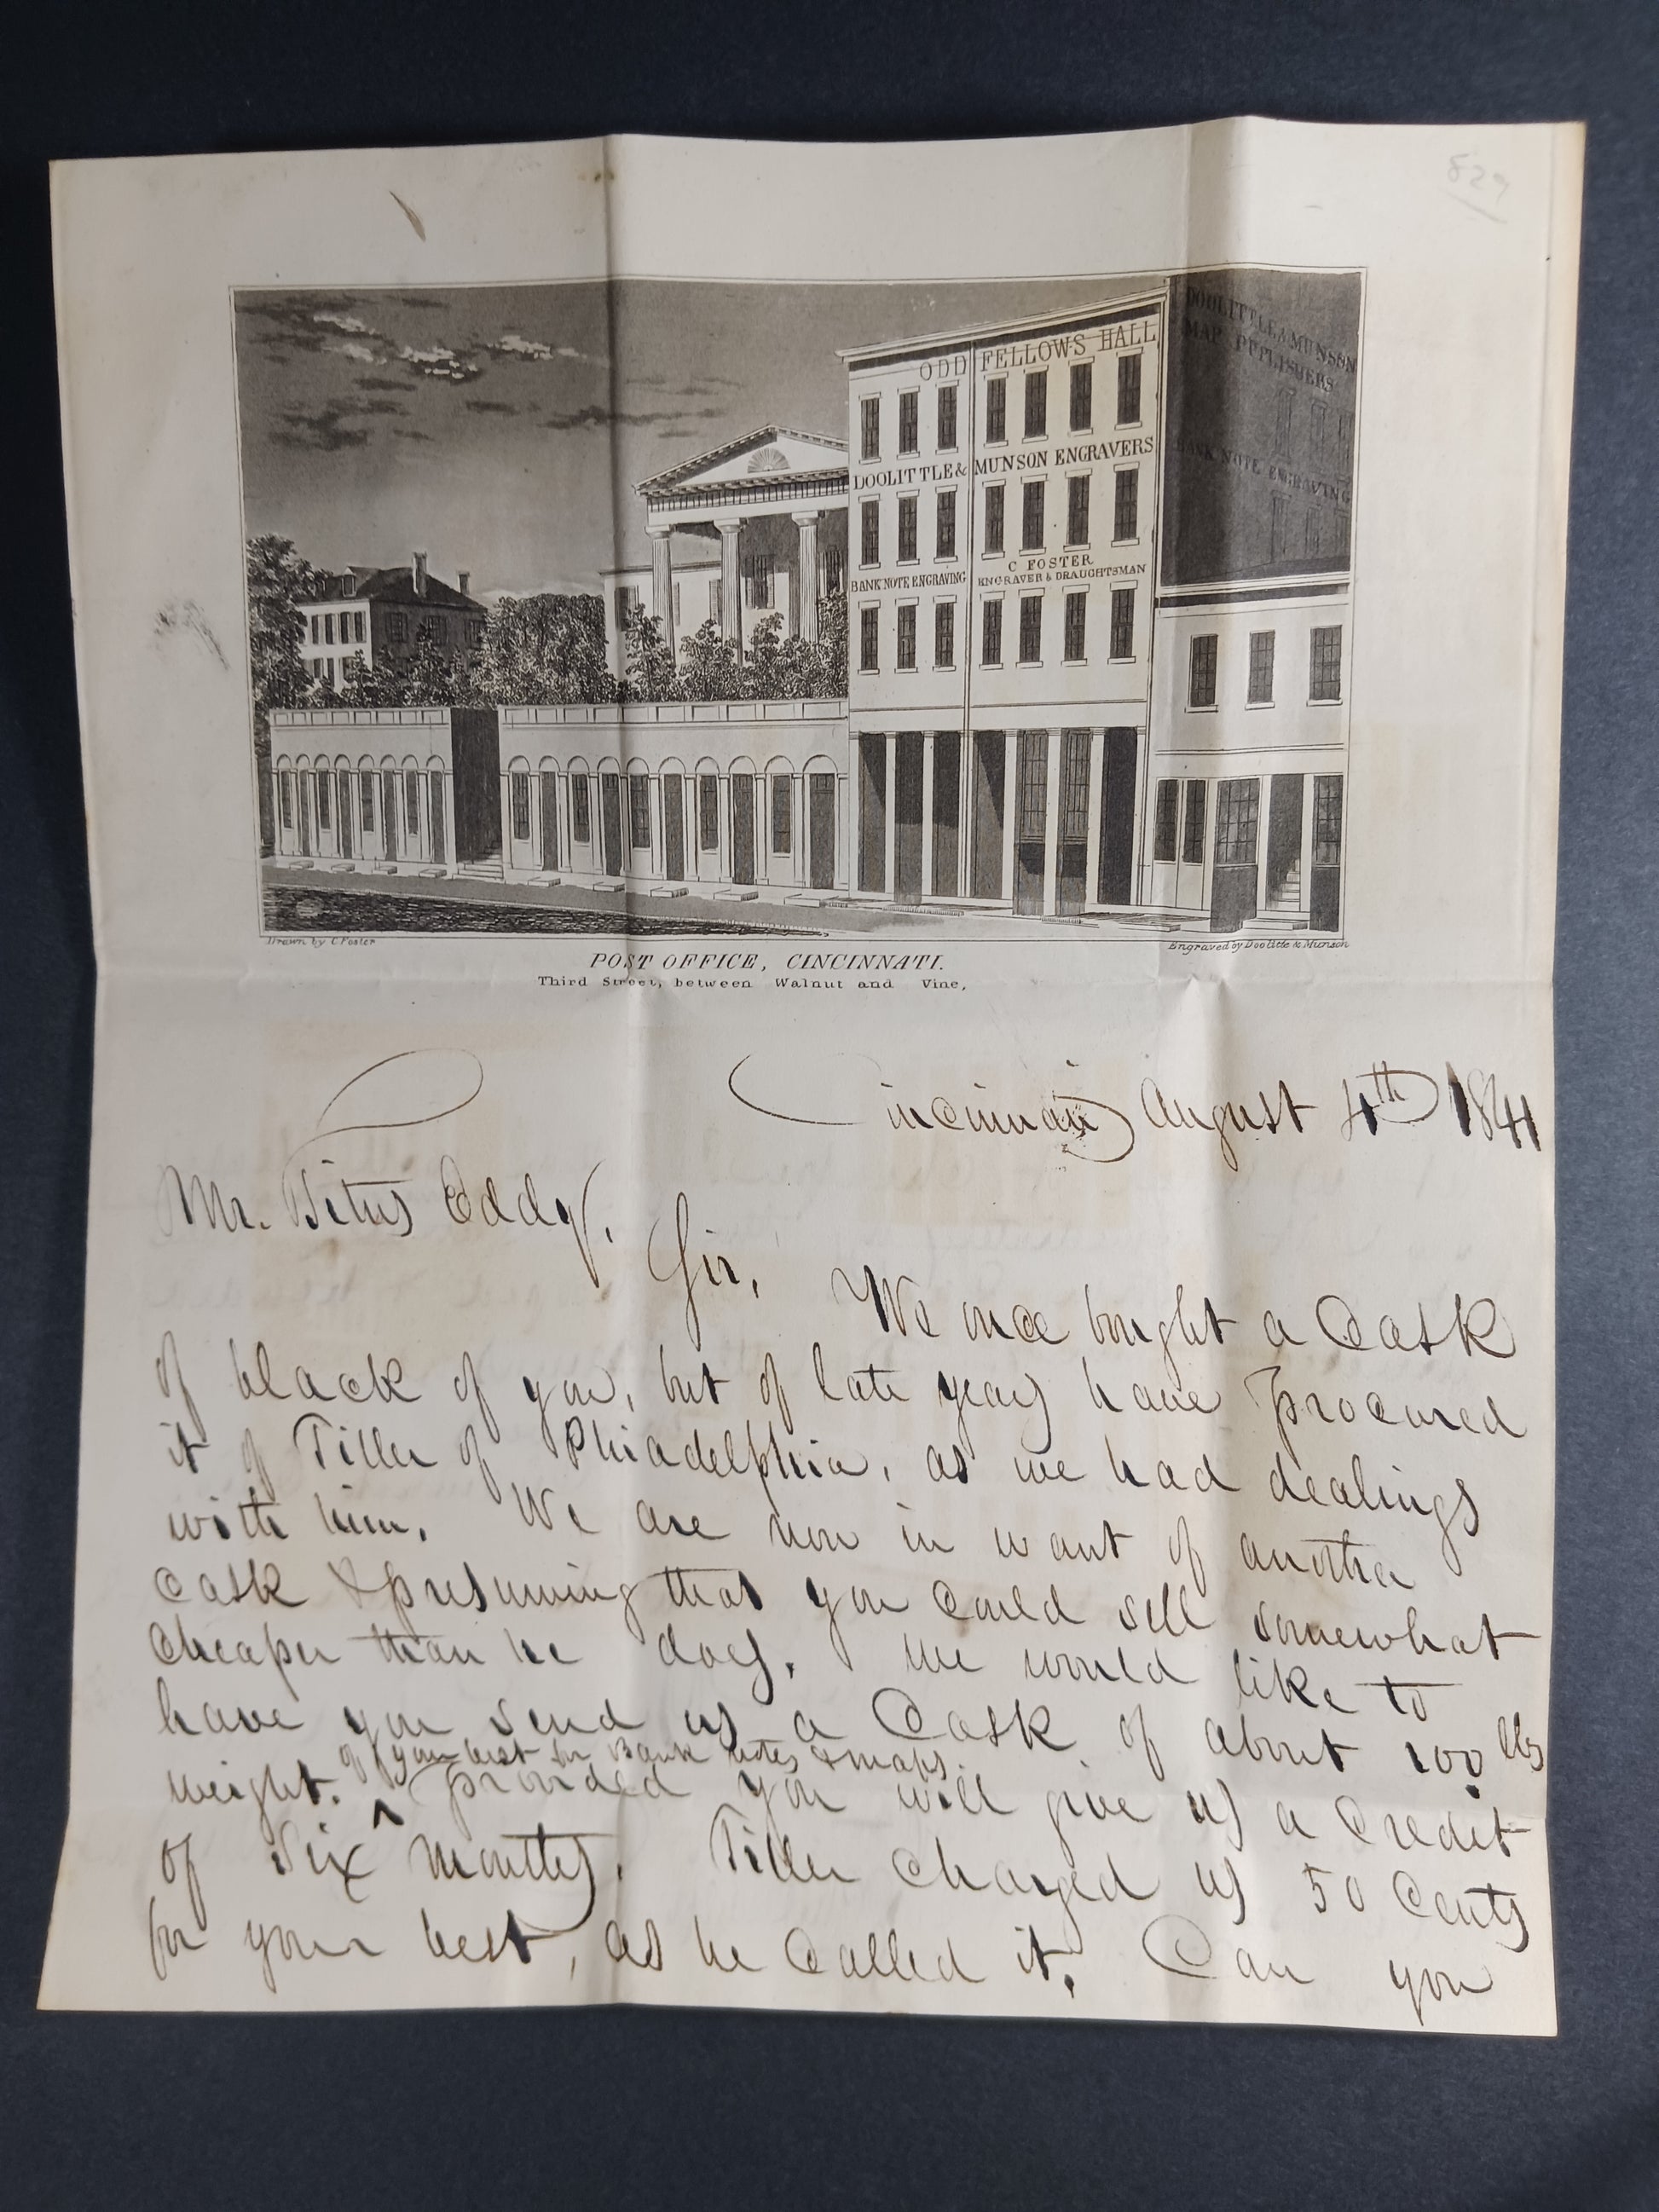 829
ODD FELLOWS HALL
DOOLITTLE & MUNSON
MAP PUBLISHERS
DOOLITTLE & MUNSON ENGRAVERS
BANK NOTE ENGRAVING
BANK NOTE ENGRAVING
C FOSTER
ENGRAVER & DRAUGHTSMAN
Drawn by C Foster
Engraved by Doolittle & Munson
POST OFFICE, CINCINNATI.
Third Street, between Walnut and Vine,
Cincinnati August 4th 1841
Mr. Titus Eddy.
Sir, We once bought a Cask
of black of you, but of late years have procured
it of Tiller of Philadelphia, as we had dealings
with him. We are now in want of another
cask & presuming that you could sell somewhat
cheaper than he does, we would like to
have you send us a Cask of about 100 lbs
of your best for Bank notes & maps.
weight. ^ provided you will give us a credit
of Six months. Tiller charged us 50 Cents
for your best, as he called it. Can you